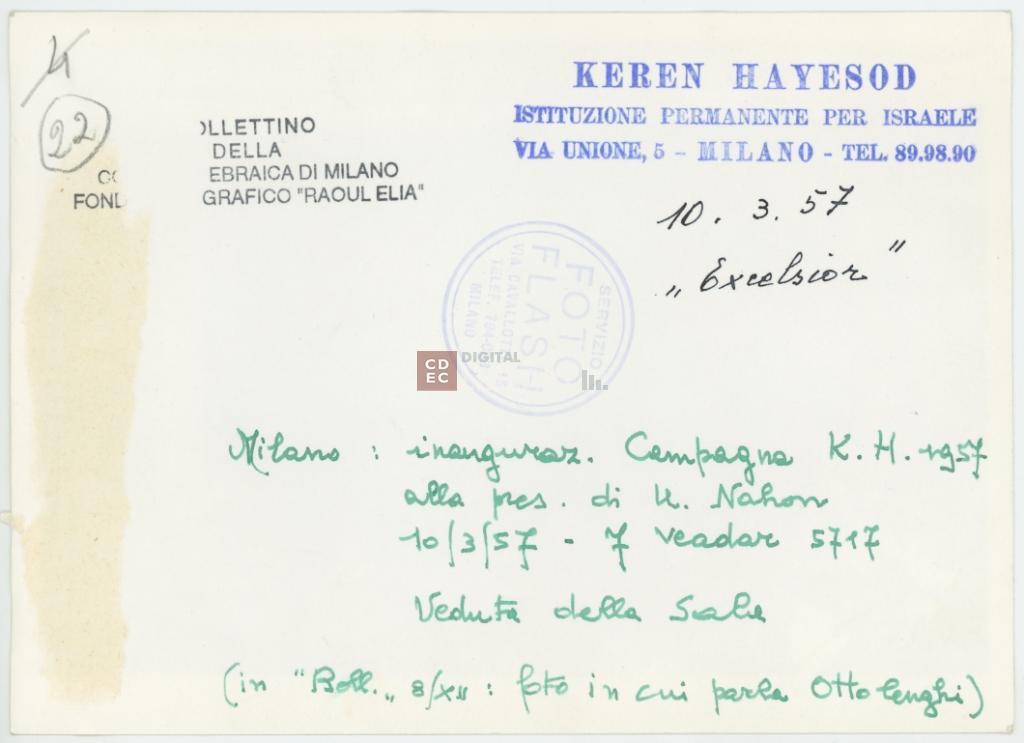 4
22
OLLETTINO
DELLA
EBRAICA DI MILANO
FOND GRAFICO "RAOUL ELIA"
KEREN HAYESOD
ISTITUZIONE PERMANENTE PER ISRAELE
VIA UNIONE, 5 - MILANO - TEL. 89.98.90
10. 3. 57
„ Excelsior "
SERVIZIO
FOTO
FLASH
VIA CAVALLOTTI, 15
MILANO
CDEC DIGITAL
Milano : inauguraz. Campagna K. H. 1957
alla pres. di U. Nahon
10/3/57 - 7 veadar 5717
Veduta della Sala
(in "Boll.„ 8/XII : foto in cui parla Ottolenghi)